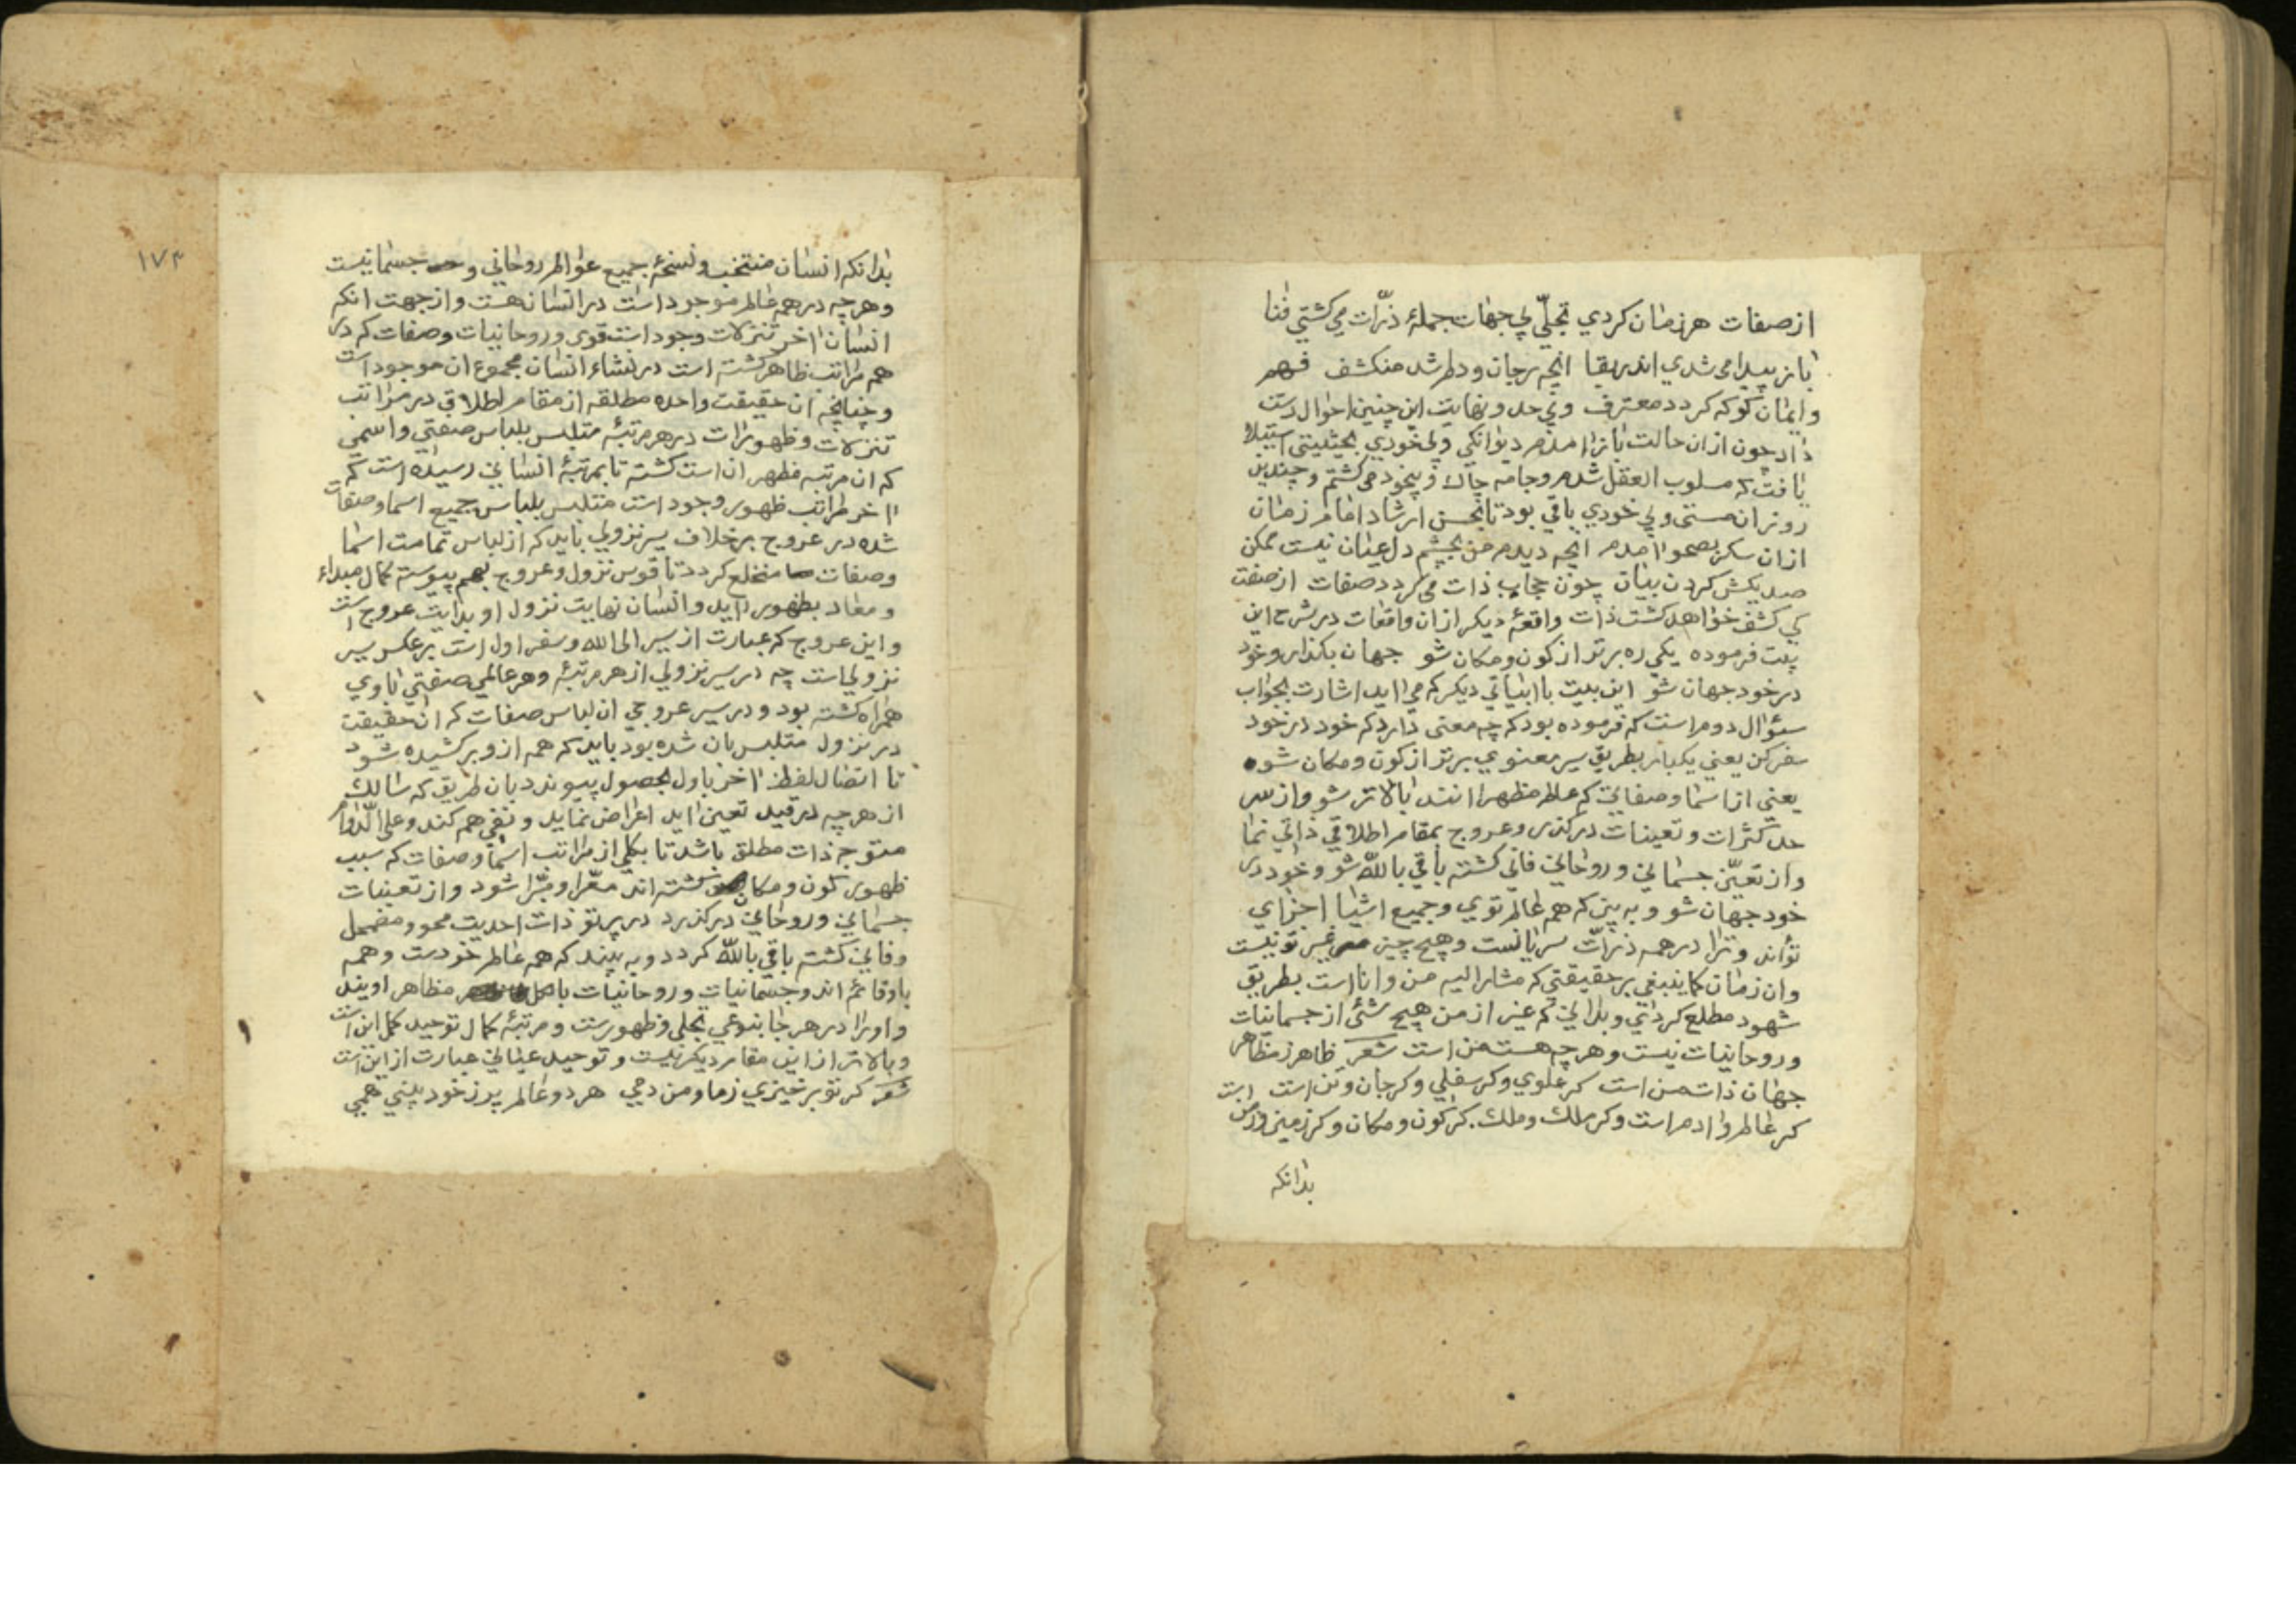 از صفات هر زمان کردي تجلّي بي جهات جملهٔ ذرّات مي کشتي فنا
باز پيدا مي شدي اندر بقا انچه بر جان و دلم شد منکشف فهم
و ايمان کو که کردد معترف و بي حد و نهايت اين چنين احوال دست
داد چون ازان حالت باز امدم ديوانکي و بي خودي بحيثيتي استيلا
يافت که مسلوب العقل شدم و جامه چاك و بيخود مي کشتم و چندين
روز ان مستي و بي خودي باقي بود تا بحسن ارشاد امام زمان
ازان سکر بصحو امدم انچه ديدم من بچشم دل عيان نيست ممکن
صد يکش کردن بيان چون حجاب ذات مي کردد صفات از صفت
کي کشف خواهد کشت ذات واقعهٔ ديکر ازان واقعات در شرح اين
بيت فرموده يکي ره برتر از کون و مکان شو جهان بکذار و خود
در خود جهان شو اين بيت با ابياتي ديکر که مي ايد اشارت بجواب
سؤال دوم است که فرموده بود که چه معنی دارد که خود در خود
سفر کن يعني يکبار بطريق سير معنوي برتر از کون و مکان شو
يعني از اسما و صفاتي که عالم مظهر انند بالاتر شو و از سر
حد کثرات و تعينات در کذر و عروج بمقام اطلاقي ذاتي نما
و از تعيّن جسماني و روحاني فاني کشته باقي بالله شو و خود در
خود جهان شو و به بين که همه عالم توي و جميع اشيا اجزاي
تواند و ترا در همه ذرّات سريانست و هيچ چيز غير تو نيست
و ان زمان کما ينبغي بر حقيقتي که مشار اليه من و انا است بطريق
شهود مطلع کردي و بداني که غير از من هيچ شئ از جسمانيات
و روحانيات نيست و هر چه هست من است شعر ظاهر ز مظاهر
جهان ذات من است کر علوي و کر سفلي و کر جان و تن است
کر عالم و ادم است و کر ملك و ملك کر کون و مکان و کر زمين و زمن است
بدانکه
١٧٣
بدانکه انسان منتخب و نسخهٔ جميع عوالم روحاني و جسمانيست
و هر چه در همه عالم موجود است در انسان هست و از جهت انکه
انسان اخر تنزلات وجود است قوی و روحانيات و صفات که در
همه مراتب ظاهر کشته است در نشاء انسان مجموع ان موجود است
و چنانچه ان حقيقت واحده مطلقه از مقام اطلاقي در مراتب
تنزلات و ظهورات در هر مرتبهٔ متلبس بلباس صفتي و اسمي
که ان مرتبه مظهر ان است کشته تا بمرتبهٔ انساني رسيده است که
اخر مراتب ظهور وجود است متلبس بلباس جميع اسما و صفات
شده در عروج بر خلاف سير نزولي بايد که از لباس تمامت اسما
و صفات منخلع کردد تا قوس نزول و عروج بهم پيوسته کمال مبداء
و معاد بظهور ايد و انسان نهايت نزول او بدايت عروج است
و اين عروج که عبارت از سير الی الله و سفر اول است بر عکس سير
نزولي است چه در سير نزولي از هر مرتبهٔ و هر عالمي صفتي با وي
همراه کشته بود و در سير عروجي ان لباس صفات که ان حقيقت
در نزول متلبس بان شده بود بايد که همه ازو بر کشيده شود
تا اتصال لفظ اخر باول بحصول پيوندد بان طريق که سالك
از هر چه در قيد تعين ايد اعراض نمايد و نفي همه کند و علی الدّوام
متوجه ذات مطلق باشد تا بکلي از مراتب اسما و صفات که سبب
ظهور کون و مکان کشته اند معرّا و مبرّا شود و از تعينات
جسماني و روحاني در کذرد در پرتو ذات احديت محو و مضمحل
و فاني کشته باقي بالله کردد و به بيند که همه عالم خودست و همه
باو قائم اند و جسمانيات و روحانيات مظاهر اويند
و او را در هر جا بنوعي تجلي و ظهورست و مرتبهٔ کمال توحيد کمل اين است
و بالاتر از اين مقام ديکر نيست و توحيد عياني عبارت از اين است
شعر کر تو برخيزي ز ما و من دمي هر دو عالم پر ز خود بيني همي